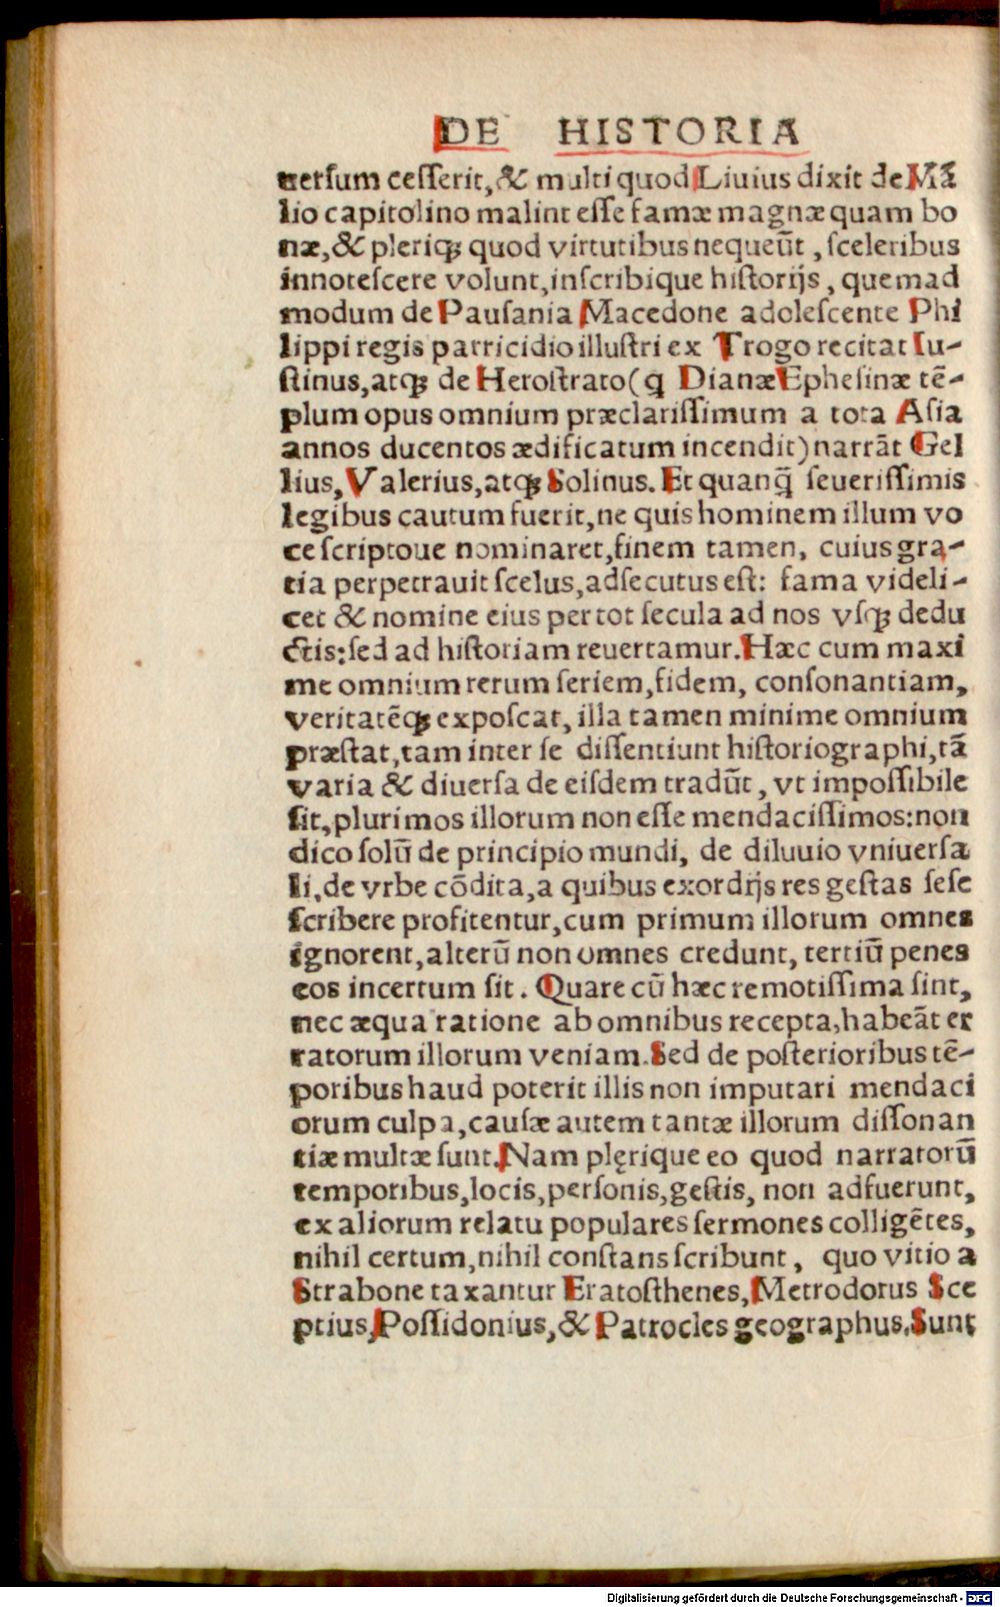 DE HISTORIA
uersum cesserit, & multi quod Liuius dixit de Mā
lio capitolino malint esse famæ magnæ quam bo
næ, & pleriqꝫ quod virtutibus nequeūt, sceleribus
innotescere volunt, inscribique historijs, quemad
modum de Pausania Macedone adolescente Phi
lippi regis parricidio illustri ex Trogo recitat Iu-
stinus, atqꝫ de Herostrato (q Dianæ Ephesinæ tē-
plum opus omnium præclarissimum a tota Asia
annos ducentos ædificatum incendit) narrāt Gel
lius, Valerius, atqꝫ Solinus. Et quanq̄ seuerissimis
legibus cautum fuerit, ne quis hominem illum vo
ce scriptoue nominaret, finem tamen, cuius gra-
tia perpetrauit scelus, adsecutus est: fama videli-
cet & nomine eius per tot secula ad nos vsqꝫ dedu
ctis: sed ad historiam reuertamur. Hæc cum maxi
me omnium rerum seriem, fidem, consonantiam,
veritatēqꝫ exposcat, illa tamen minime omnium
præstat, tam inter se dissentiunt historiographi, tā
varia & diuersa de eisdem tradūt, vt impossibile
sit, plurimos illorum non esse mendacissimos: non
dico solū de principio mundi, de diluuio vniuersa
li, de vrbe cōdita, a quibus exordijs res gestas sese
scribere profitentur, cum primum illorum omnes
ignorent, alterū non omnes credunt, tertiū penes
eos incertum sit. Quare cū hæc remotissima sint,
nec æqua ratione ab omnibus recepta, habeāt er
ratorum illorum veniam. Sed de posterioribus tē-
poribus haud poterit illis non imputari mendaci
orum culpa, causæ autem tantæ illorum dissonan
tiæ multæ sunt. Nam plęrique eo quod narratorū
temporibus, locis, personis, gestis, non adfuerunt,
ex aliorum relatu populares sermones colligētes,
nihil certum, nihil constans scribunt, quo vitio a
Strabone taxantur Eratosthenes, Metrodorus Sce
ptius, Possidonius, & Patrocles geographus. Sunt
Digitalisierung gefördert durch die Deutsche Forschungsgemeinschaft - DFG